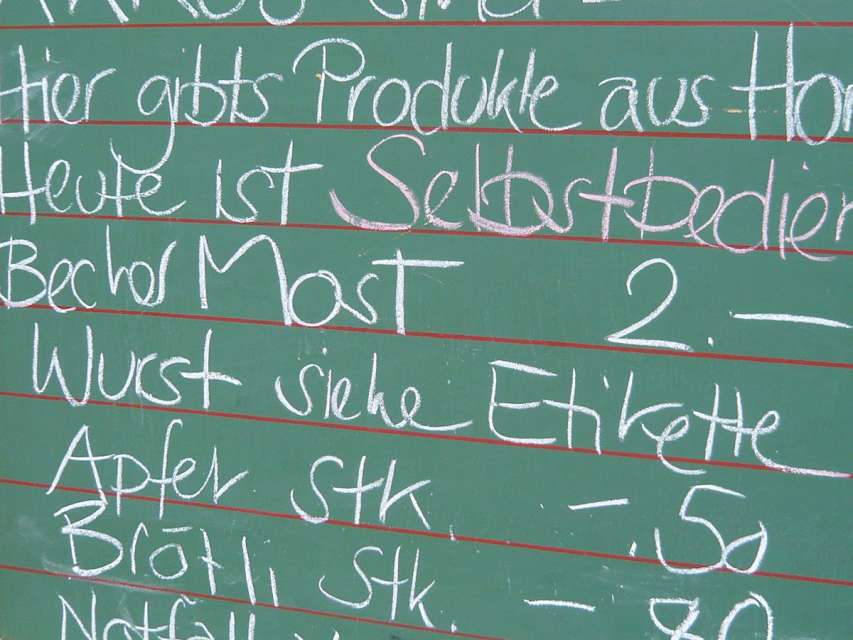 Hier gibts Produkte aus Hor
Heute ist Selbstbedien
Becher Most 2.—
Wurst siehe Etikette
Apfel Stk. —.50
Brötli Stk. —.80